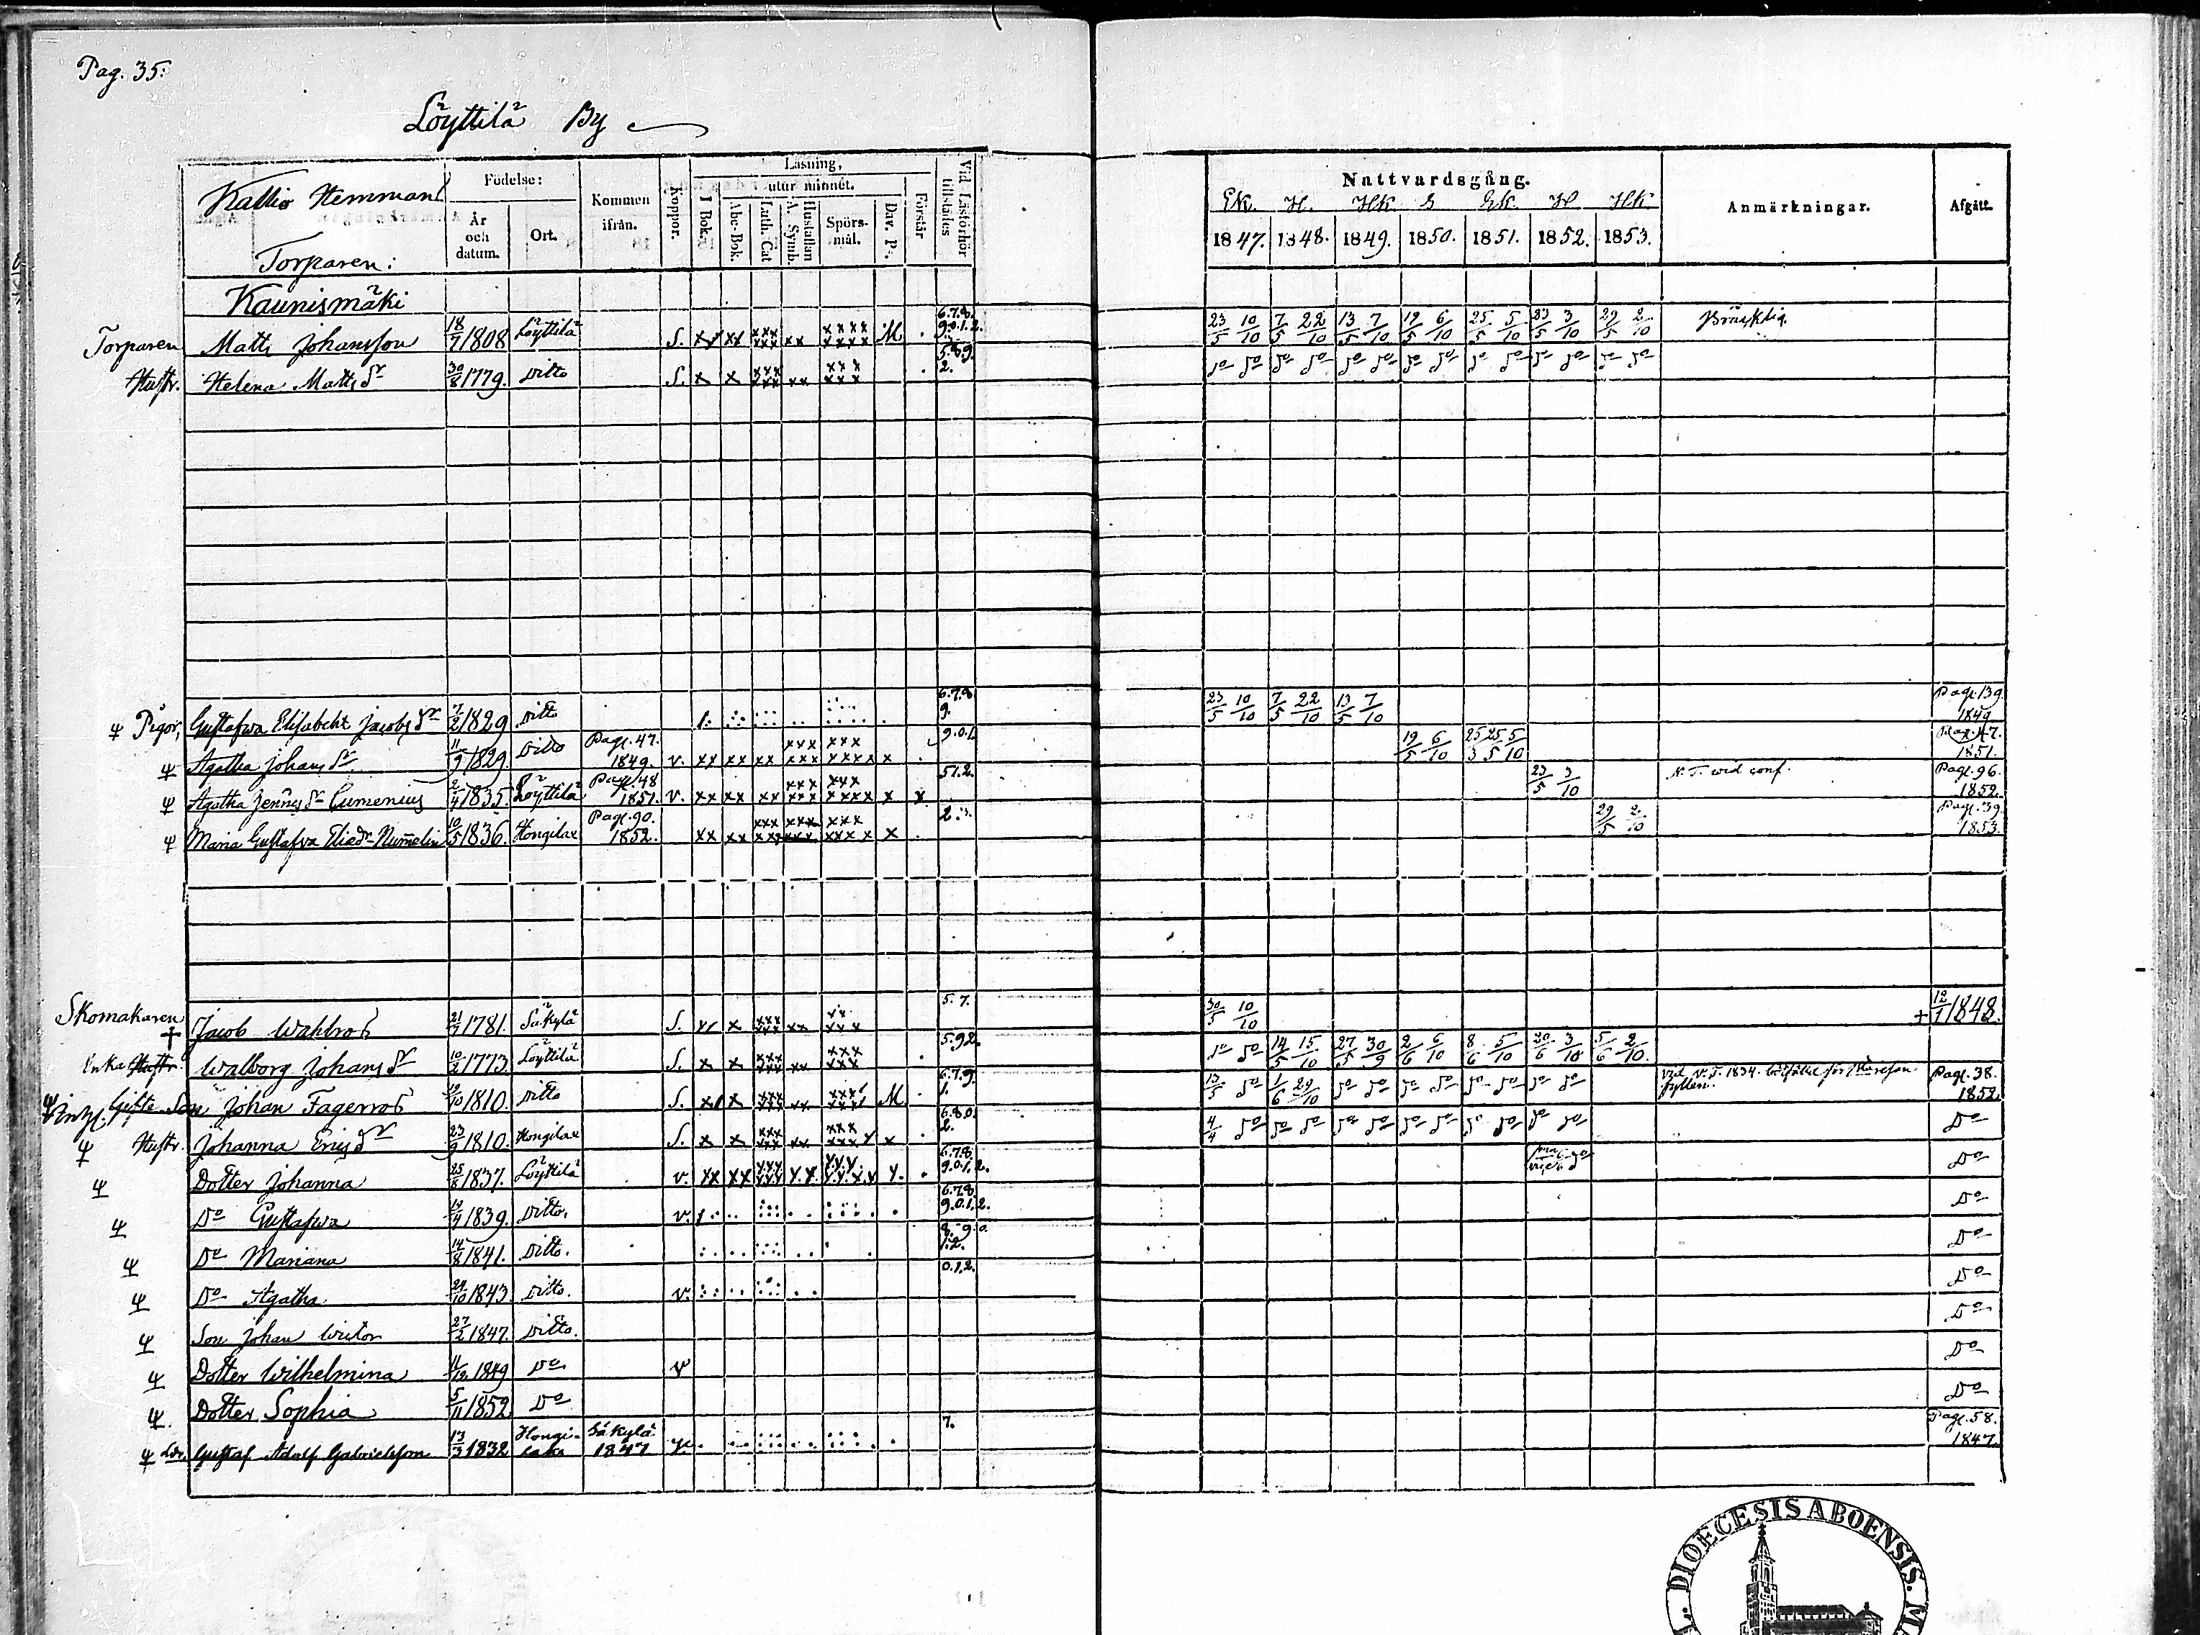 Pag. 35.
Löyttilä By
Kallio Hemmans
Torparen:
Födelse:
År och datum.
Ort.
Kommen ifrån.
Koppor.
Läsning,
utur minnet.
I Bok.
Abc-Bok.
Luth. Cat
Hustaflan A. Symb.
Spörsmål.
Dav. Ps.
Förstår
Vid Läsförhör tillstädes
Nattvardsgång.
Ek. H. Hk. S Ek. H Hk.
1847. 1848. 1849. 1850. 1851. 1852. 1853.
Anmärkningar.
Afgått.
Kaunismäki
Torparen Matts Johansson 18/7 1808 Löyttilä S. M 6.7.8. 9.0.1.2. 23/5 10/10 7/5 22/10 13/5 7/10 19/5 6/10 25/5 5/10 23/5 3/10 29/5 2/10 Bräcklig.
Hustr. Helena Matts dr 30/8 1779. Ditto S. 5.8.9. 2.
ψ Pigor, Gustafwa Elisabeht Jacobs dr 7/2 1829 Ditto 6.7.8. 9. 23/5 10/10 7/5 22/10 13/5 7/10 Pag. 139 1849
ψ Agatha Johans dr 11/9 1829. Ditto Pag. 47. 1849. v. 9.0.1. 19/5 6/10 25/3 25/5 5/10 Pag. 47. 1851.
ψ Agatha Zennes dr Cumenius 2/4 1835. Löyttilä Pag. 48 1851. v. 51.2. 23/5 3/10 N. T. wid conf. Pag. 96. 1852.
ψ Maria Gustafva Eliaedr Nummelin 10/5 1836. Hongilax Pag. 90. 1852. 2.3. 29/5 2/10 Pag. 39. 1853.
Skomakaren † Jacob Wahlros 21/7 1781. Säkylä S. 5.7. 30/5 10/10 + 12/1 1848.
Enka Hustr. Walborg Johans dr 10/2 1773. Löyttilä S. 5.9.2. do do 14/5 15/10 27/5 30/9 2/6 6/10 8/6 5/10 20/6 3/10 5/6 2/10.
ψ Inhys. Gifte Son Johan Fagerros 19/10 1810. Ditto S. M 6.7.9. 1. 13/5 do 1/6 29/10 do do do do do do do do fylleri. Pag. 38. 1852.
ψ Hustr. Johanna Erics dr 23/9 1810. Hongilax S. 6.8.0. 2. 4/4 do do do do do do do do do do do Do
ψ Dotter Johanna 25/8 1837. Löyttilä v. 6.7.8. 9.0.1.2. Do
ψ Do Gustafwa 19/4 1839. Ditto. v. 6.7.8. 9.0.1.2. Do
ψ Do Mariana 14/8 1841. Ditto. 8.9.0. 1.2. Do
ψ Do Agatha 29/10 1843. Ditto. v. 0.1.2. Do
ψ Son Johan Wictor 27/2 1847. Ditto. Do
ψ Dotter Wilhelmina 11/12 1849 Do v Do
ψ Dotter Sophia 5/11 1852. Do Do
ψ Ldr. Gustaf Adolf Gabrielsson 13/3 1832 Hongilaks Säkylä 1847 7. Pag. 58. 1847.
DIOECESIS ABOENSIS.